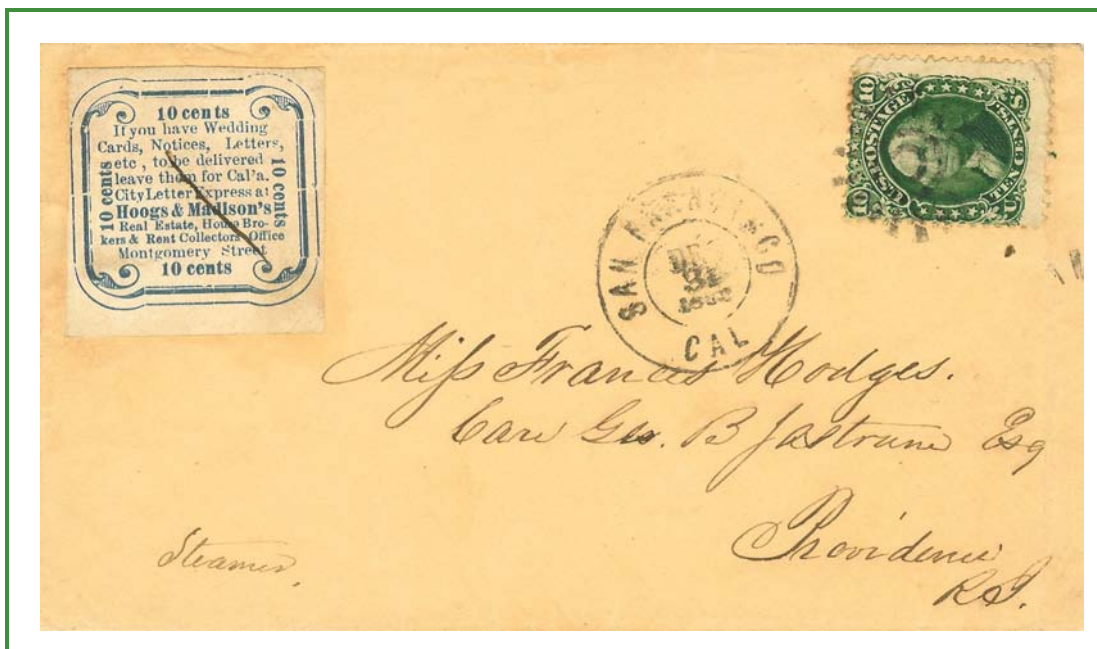 10 cents
If you have Wedding
Cards, Notices, Letters,
etc, to be delivered
leave them for Cal'a.
City Letter Express at
Hoogs & Madison's
Real Estate, House Bro-
kers & Rent Collectors Office
Montgomery Street
10 cents
10 cents
10 cents
10
U.S. POSTAGE
10
TEN CENTS
U S
SAN FRANCISCO
DEC
31
CAL
Miss Frances Hodges.
Care Geo. B Jastram Esq
Providence
R.I.
Steamer.